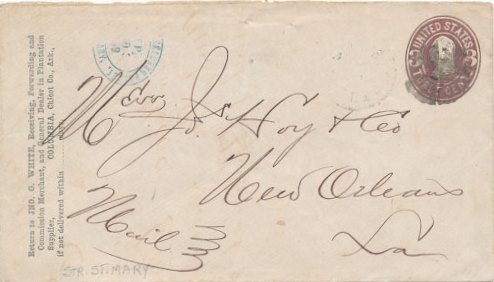 Return to JNO. G. WHITE, Receiving, Forwarding and
Commission Merchant, and General Dealer in Plantation
Supplies, COLUMBIA, Chicot Co., Ark.,
if not delivered within ........ days.
UNITED STATES
Messrs Jos Hoy & Co
New Orleans
La
Mail
STR. ST. MARY